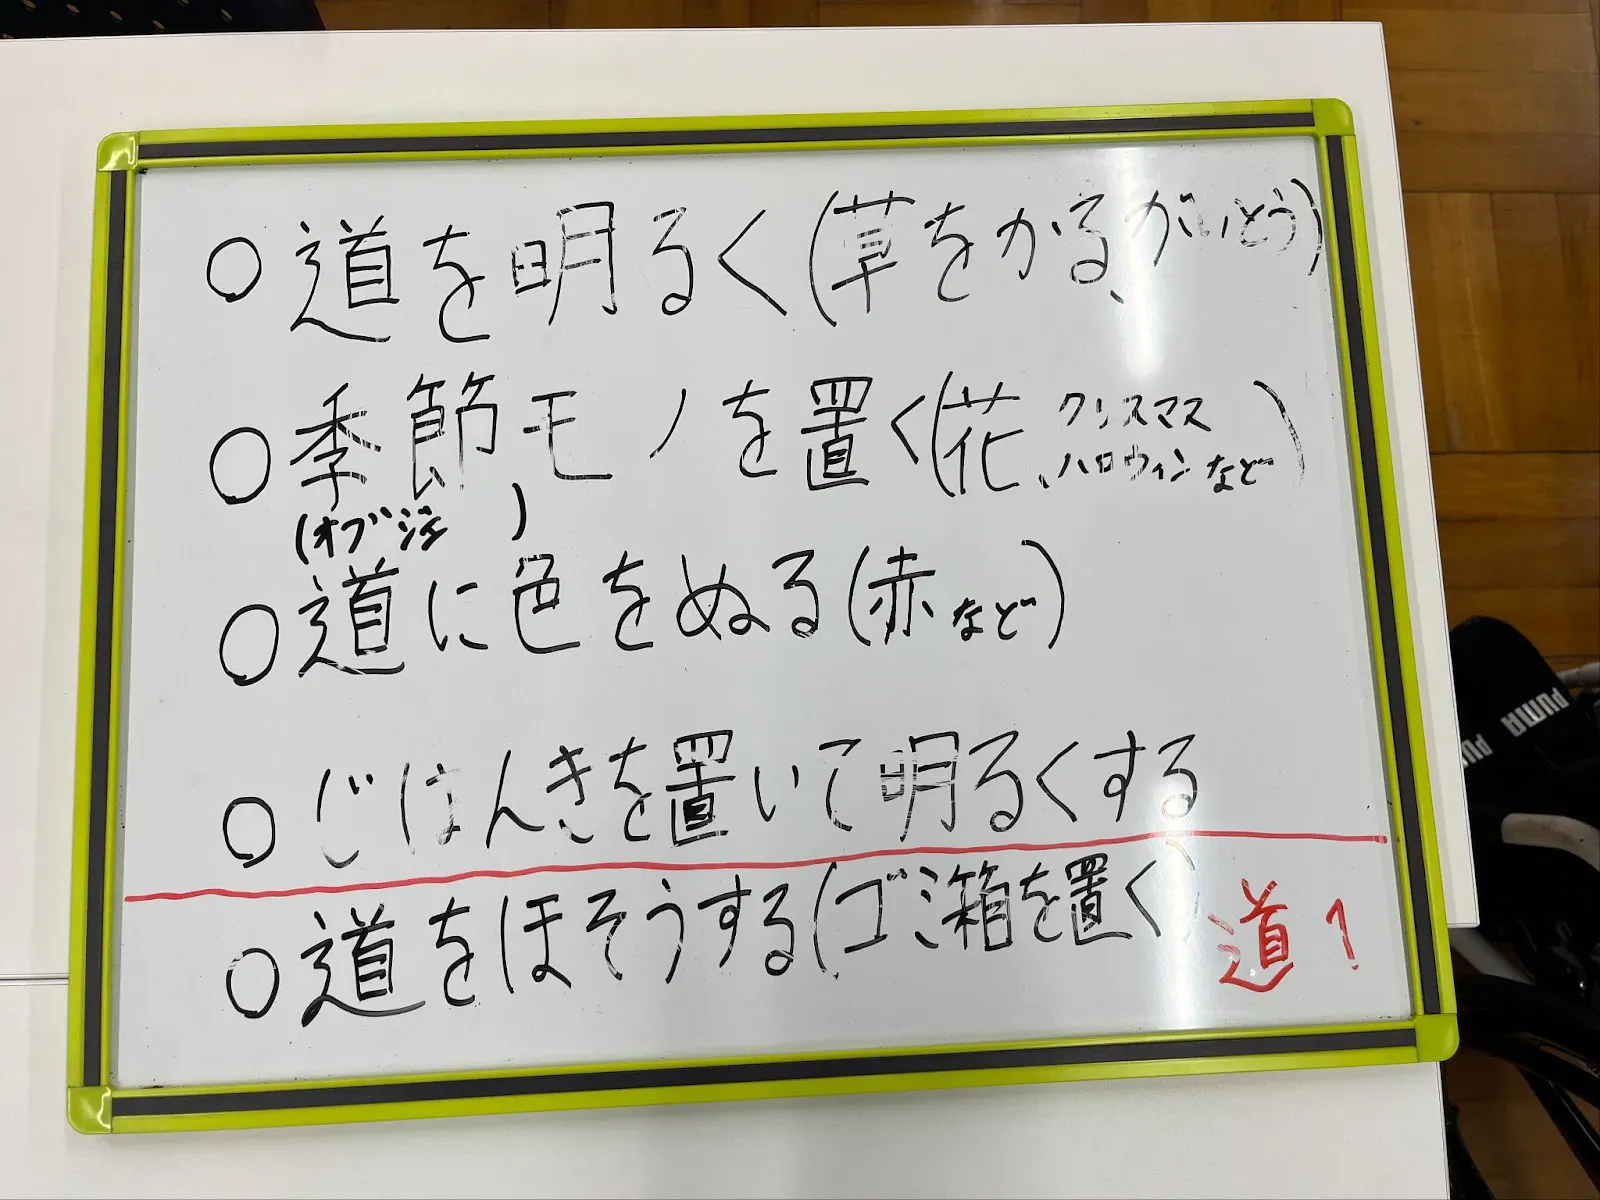 ○ 道を明るく(草をかる、がいとう)
○ 季節モノを置く(花、クリスマス
ハロウィンなど)
(オブジェ )
○ 道に色をぬる(赤など)
○ じはんきを置いて明るくする
○ 道をほそうする(ゴミ箱を置く)
道1
PUMA
PUMA